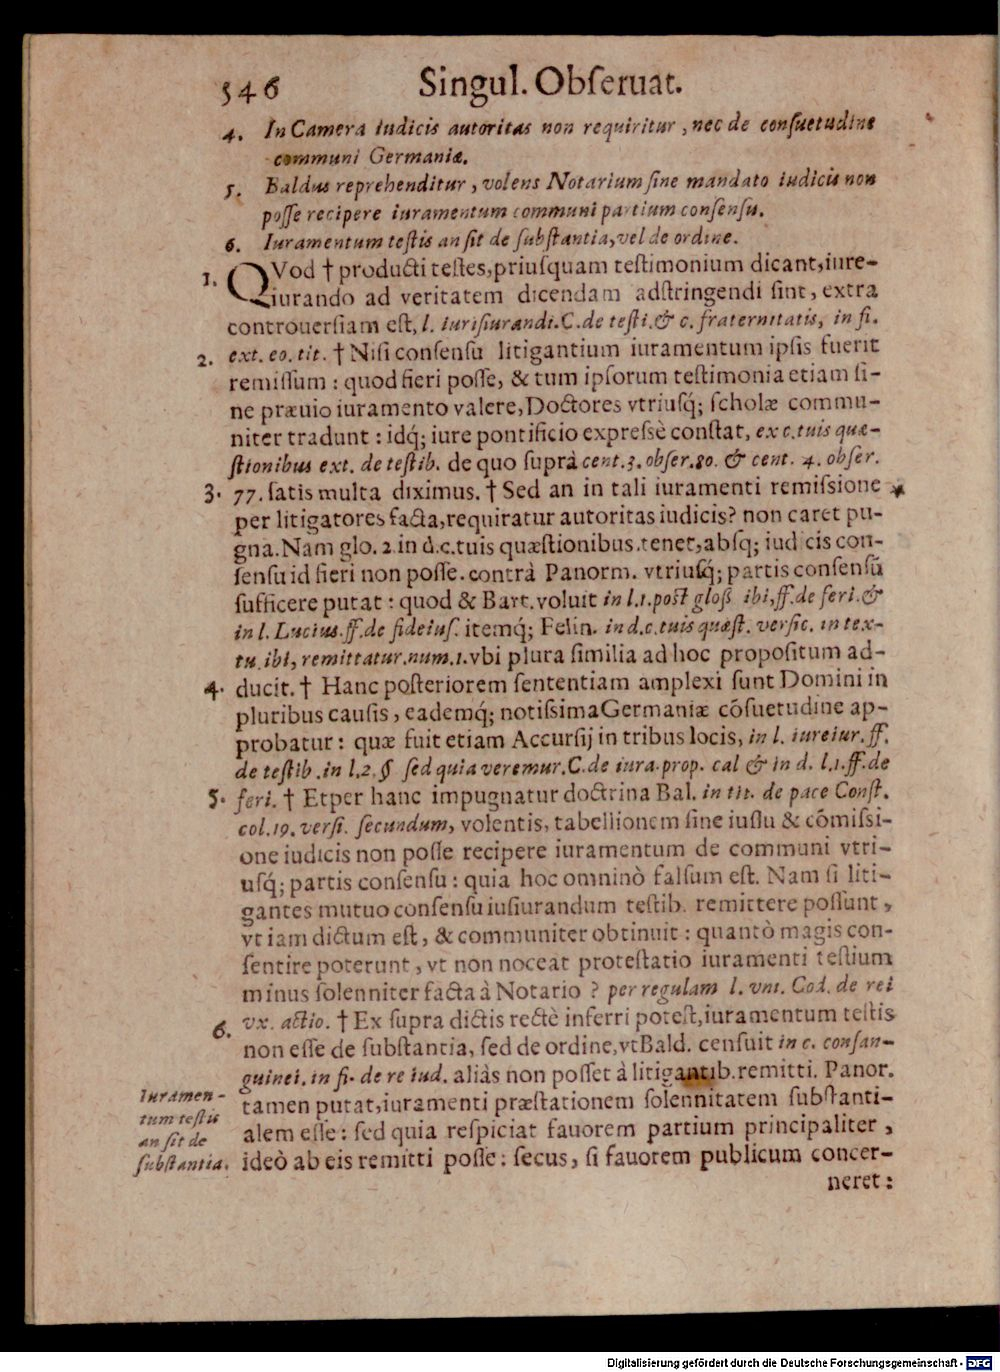 546 Singul. Obſeruat.
4. In Camera iudicis autoritas non requiritur, nec de conſuetudine
communi Germaniæ.
5. Baldus reprehenditur, volens Notarium ſine mandato iudicis non
poſſe recipere iuramentum communi partium conſenſu.
6. Iuramentum teſtis an ſit de ſubſtantia, vel de ordine.
1. QVod † producti teſtes, priuſquam teſtimonium dicant, iure-
iurando ad veritatem dicendam adſtringendi ſint, extra
controuerſiam eſt, l. iuriſiurandi. C. de teſti. & c. fraternitatis, in fi.
2. ext. eo. tit. † Niſi conſenſu litigantium iuramentum ipſis fuerit
remiſſum : quod fieri poſſe, & tum ipſorum teſtimonia etiam ſi-
ne præuio iuramento valere, Doctores vtriuſq́; ſcholæ commu-
niter tradunt : idq́; iure pontificio expreſsè conſtat, ex c. tuis quæ-
ſtionibus ext. de teſtib. de quo ſuprà cent. 3. obſer. 80. & cent. 4. obſer.
3. 77. ſatis multa diximus. † Sed an in tali iuramenti remiſsione
per litigatores facta, requiratur autoritas iudicis? non caret pu-
gna. Nam glo. 2. in d. c. tuis quæſtionibus. tenet, abſq; iudicis con-
ſenſu id fieri non poſſe. contrà Panorm. vtriuſq́; partis conſenſū
ſufficere putat : quod & Bart. voluit in l. 1. poſt gloſſ ibi, ff. de feri. &
in l. Lucius. ff. de fideiuſ. itemq́; Felin. in d. c. tuis quæſt. verſic. in tex-
tu ibi, remittatur. num. 1. vbi plura ſimilia ad hoc propoſitum ad-
4. ducit. † Hanc poſteriorem ſententiam amplexi ſunt Domini in
pluribus cauſis, eademq́; notiſsima Germaniæ cōſuetudine ap-
probatur : quæ fuit etiam Accurſij in tribus locis, in l. iureiur. ff.
de teſtib. in l. 2. § ſed quia veremur. C. de iura. prop. cal & in d. l. 1. ff. de
5. feri. † Et per hanc impugnatur doctrina Bal. in tit. de pace Conſt.
col. 19. verſi. ſecundum, volentis, tabellionem ſine iuſſu & cōmiſsi-
one iudicis non poſſe recipere iuramentum de communi vtri-
uſq́; partis conſenſu : quia hoc omninò falſum eſt. Nam ſi liti-
gantes mutuo conſenſu iuſiurandum teſtib. remittere poſſunt,
vt iam dictum eſt, & communiter obtinuit : quantò magis con-
ſentire poterunt, vt non noceat proteſtatio iuramenti teſtium
minus ſolenniter facta à Notario ? per regulam l. vni. Cod. de rei
6. vx. actio. † Ex ſupra dictis rectè inferri poteſt, iuramentum teſtis
non eſſe de ſubſtantia, ſed de ordine, vt Bald. cenſuit in c. conſan-
guinei. in fi. de re iud. aliàs non poſſet à litigantib. remitti. Panor.
tamen putat, iuramenti præſtationem ſolennitatem ſubſtanti-
alem eſſe : ſed quia reſpiciat fauorem partium principaliter,
ideò ab eis remitti poſſe : ſecus, ſi fauorem publicum concer-
neret :
Iuramen-
tum teſtis
an ſit de
ſubſtantia.
Digitalisierung gefördert durch die Deutsche Forschungsgemeinschaft - DFG